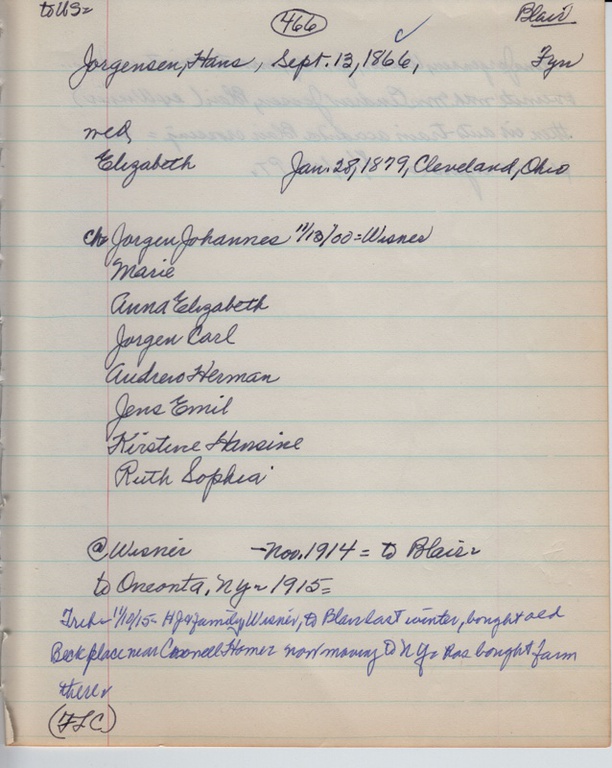 to US=
466
Blair
Jorgensen, Hans, Sept. 13, 1866, Fyn
wed,
Elizabeth Jan. 28, 1879, Cleveland, Ohio
ch= Jorgen Johannes 11/13/00 = Wisner
Marie
Anna Elizabeth
Jorgen Carl
Andrew Herman
Jens Emil
Kirstine Hansine
Ruth Sophia
@ Wisner - Nov. 1914 = to Blair=
to Oneonta, NY= 1915=
11/10/15= HJ & family Wisner, to Blair last winter, bought old
Beck place near Home= now moving to NY= has bought farm
there=
(FLC)